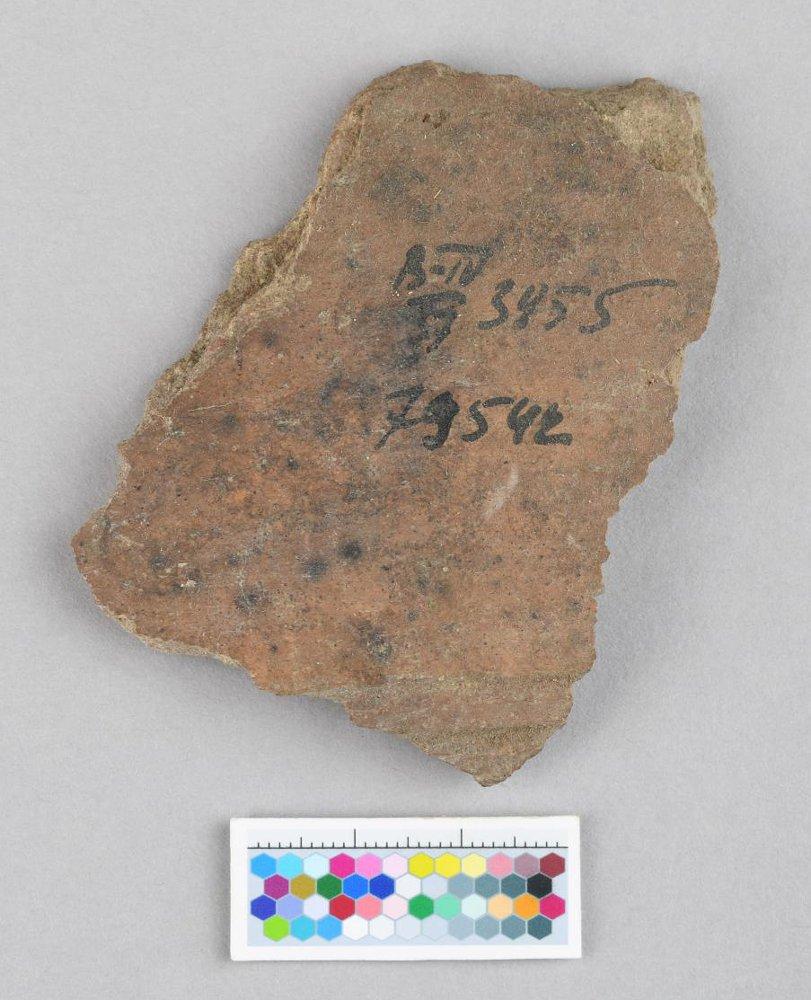 B-IV
VI 3455
79542